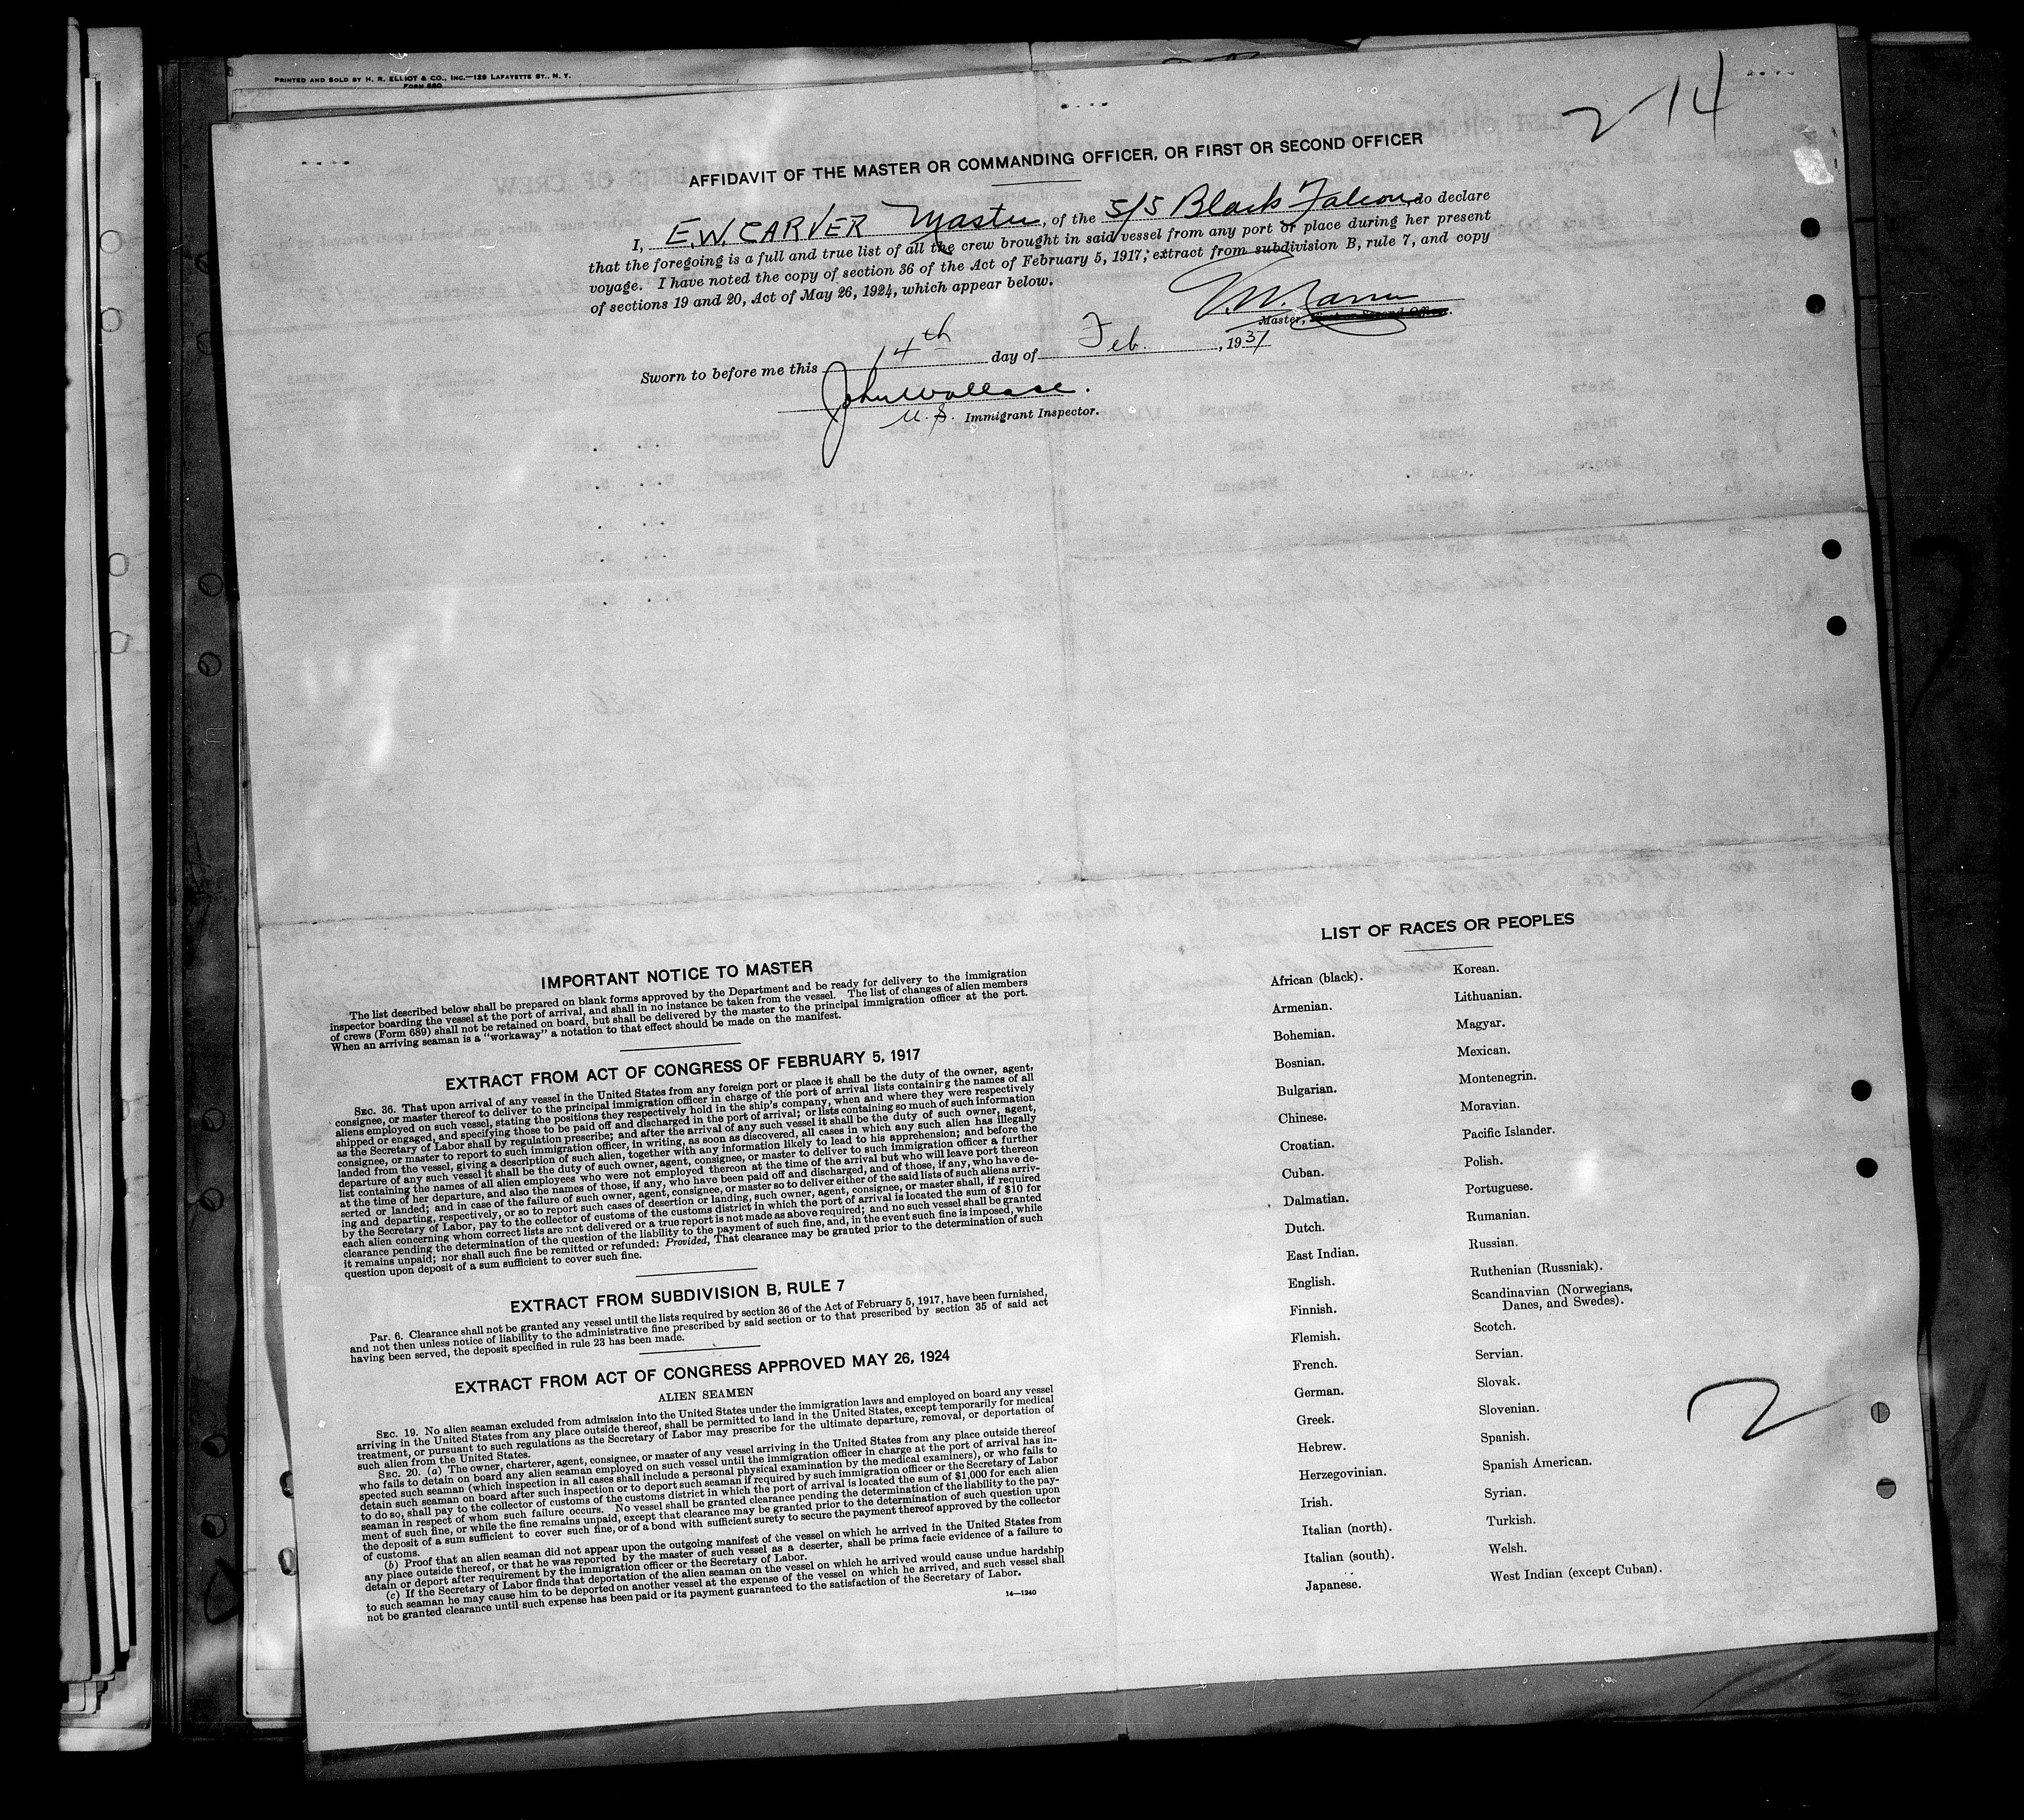 PRINTED AND SOLD BY H. R. ELLIOT & CO., INC.—129 LAFAYETTE ST., N. Y.
FORM 680
2 14
AFFIDAVIT OF THE MASTER OR COMMANDING OFFICER, OR FIRST OR SECOND OFFICER
I, E.W. CARVER Master, of the S/S Black Falcon, do declare
that the foregoing is a full and true list of all the crew brought in said vessel from any port or place during her present
voyage. I have noted the copy of section 36 of the Act of February 5, 1917; extract from subdivision B, rule 7, and copy
of sections 19 and 20, Act of May 26, 1924, which appear below.
Master, First or Second Officer.
Sworn to before me this 14th day of Feb., 1937
John Wallace.
U.S. Immigrant Inspector.
IMPORTANT NOTICE TO MASTER
The list described below shall be prepared on blank forms approved by the Department and be ready for delivery to the immigration
inspector boarding the vessel at the port of arrival, and shall in no instance be taken from the vessel. The list of changes of alien members
of crews (Form 689) shall not be retained on board, but shall be delivered by the master to the principal immigration officer at the port.
When an arriving seaman is a "workaway" a notation to that effect should be made on the manifest.
EXTRACT FROM ACT OF CONGRESS OF FEBRUARY 5, 1917
SEC. 36. That upon arrival of any vessel in the United States from any foreign port or place it shall be the duty of the owner, agent,
consignee, or master thereof to deliver to the principal immigration officer in charge of the port of arrival lists containing the names of all
aliens employed on such vessel, stating the positions they respectively hold in the ship's company, when and where they were respectively
shipped or engaged, and specifying those to be paid off and discharged in the port of arrival; or lists containing so much of such information
as the Secretary of Labor shall by regulation prescribe; and after the arrival of any such vessel it shall be the duty of such owner, agent,
consignee, or master to report to such immigration officer, in writing, as soon as discovered, all cases in which any such alien has illegally
landed from the vessel, giving a description of such alien, together with any information likely to lead to his apprehension; and before the
departure of any such vessel it shall be the duty of such owner, agent, consignee, or master to deliver to such immigration officer a further
list containing the names of all alien employees who were not employed thereon at the time of the arrival but who will leave port thereon
at the time of her departure, and also the names of those, if any, who have been paid off and discharged, and of those, if any, who have de-
serted or landed; and in case of the failure of such owner, agent, consignee, or master so to deliver either of the said lists of such aliens arriv-
ing and departing, respectively, or so to report such cases of desertion or landing, such owner, agent, consignee, or master shall, if required
by the Secretary of Labor, pay to the collector of customs of the customs district in which the port of arrival is located the sum of $10 for
each alien concerning whom correct lists are not delivered or a true report is not made as above required; and no such vessel shall be granted
clearance pending the determination of the question of the liability to the payment of such fine, and, in the event such fine is imposed, while
it remains unpaid; nor shall such fine be remitted or refunded: Provided, That clearance may be granted prior to the determination of such
question upon deposit of a sum sufficient to cover such fine.
EXTRACT FROM SUBDIVISION B, RULE 7
Par. 6. Clearance shall not be granted any vessel until the lists required by section 36 of the Act of February 5, 1917, have been furnished,
and not then unless notice of liability to the administrative fine prescribed by said section or to that prescribed by section 35 of said act
having been served, the deposit specified in rule 23 has been made.
EXTRACT FROM ACT OF CONGRESS APPROVED MAY 26, 1924
ALIEN SEAMEN
SEC. 19. No alien seaman excluded from admission into the United States under the immigration laws and employed on board any vessel
arriving in the United States from any place outside thereof, shall be permitted to land in the United States, except temporarily for medical
treatment, or pursuant to such regulations as the Secretary of Labor may prescribe for the ultimate departure, removal, or deportation of
such alien from the United States.
SEC. 20. (a) The owner, charterer, agent, consignee, or master of any vessel arriving in the United States from any place outside thereof
who fails to detain on board any alien seaman employed on such vessel until the immigration officer in charge at the port of arrival has in-
spected such seaman (which inspection in all cases shall include a personal physical examination by the medical examiners), or who fails to
detain such seaman on board after such inspection or to deport such seaman if required by such immigration officer or the Secretary of Labor
to do so, shall pay to the collector of customs of the customs district in which the port of arrival is located the sum of $1,000 for each alien
seaman in respect of whom such failure occurs. No vessel shall be granted clearance pending the determination of the liability to the pay-
ment of such fine, or while the fine remains unpaid, except that clearance may be granted prior to the determination of such question upon
the deposit of a sum sufficient to cover such fine, or of a bond with sufficient surety to secure the payment thereof approved by the collector
of customs.
(b) Proof that an alien seaman did not appear upon the outgoing manifest of the vessel on which he arrived in the United States from
any place outside thereof, or that he was reported by the master of such vessel as a deserter, shall be prima facie evidence of a failure to
detain or deport after requirement by the immigration officer or the Secretary of Labor.
(c) If the Secretary of Labor finds that deportation of the alien seaman on the vessel on which he arrived would cause undue hardship
to such seaman he may cause him to be deported on another vessel at the expense of the vessel on which he arrived, and such vessel shall
not be granted clearance until such expense has been paid or its payment guaranteed to the satisfaction of the Secretary of Labor.
14—1240
LIST OF RACES OR PEOPLES
African (black).
Armenian.
Bohemian.
Bosnian.
Bulgarian.
Chinese.
Croatian.
Cuban.
Dalmatian.
Dutch.
East Indian.
English.
Finnish.
Flemish.
French.
German.
Greek.
Hebrew.
Herzegovinian.
Irish.
Italian (north).
Italian (south).
Japanese.
Korean.
Lithuanian.
Magyar.
Mexican.
Montenegrin.
Moravian.
Pacific Islander.
Polish.
Portuguese.
Rumanian.
Russian.
Ruthenian (Russniak).
Scandinavian (Norwegians,
Danes, and Swedes).
Scotch.
Servian.
Slovak.
Slovenian.
Spanish.
Spanish American.
Syrian.
Turkish.
Welsh.
West Indian (except Cuban).
2